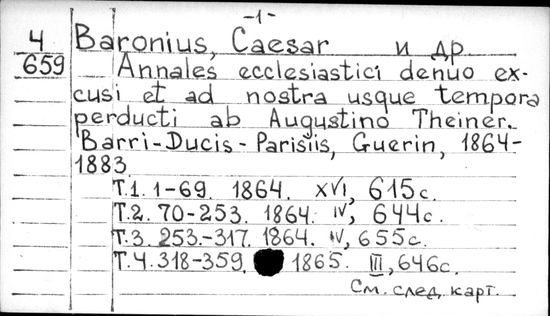 -1-
4
659
Baronius, Caesar и др
Annales ecclesiastici denuo ex-
cusi et ad nostra usque tempora
perducti ab Augustino Theiner.
Barri-Ducis-Parisiis, Guerin, 1864-
1883
Т.1. 1-69 1864. XVI, 615с.
Т.2. 70-253. 1864. IV, 644с.
Т.3. 253.-317. 1864. IV, 655с.
Т.4. 318-359. 1865. III, 646с.
См. след. карт.